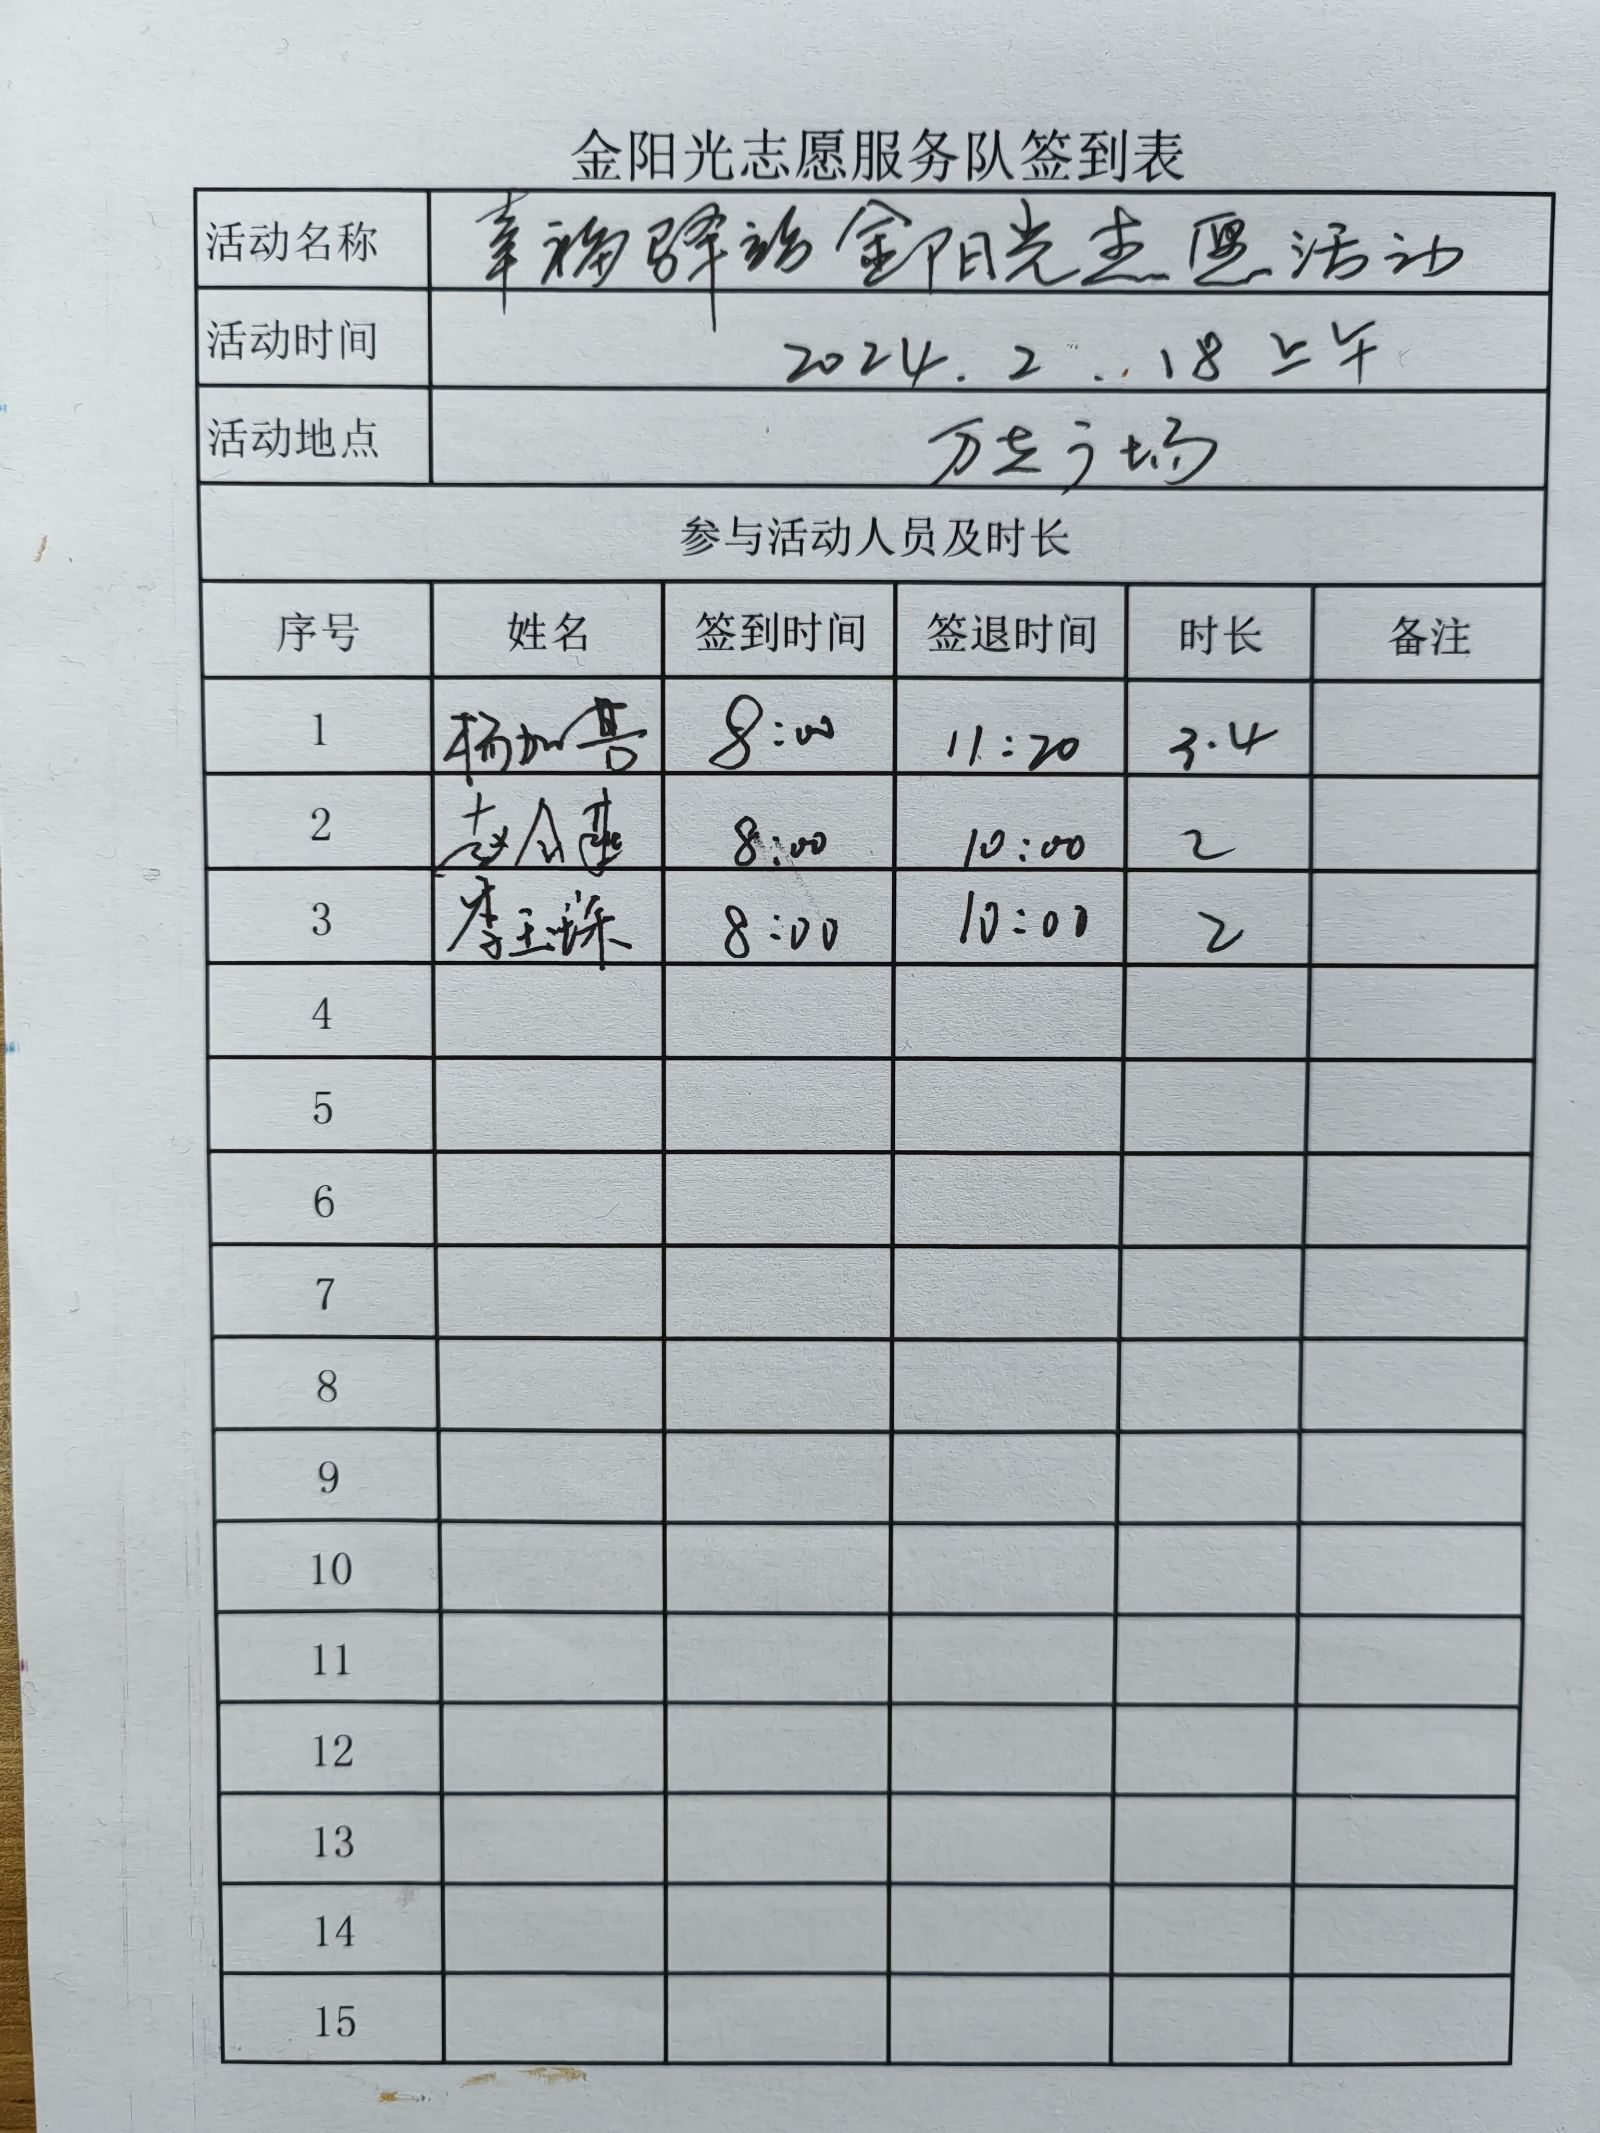 金阳光志愿服务队签到表
活动名称 幸福驿站金阳光志愿活动
活动时间 2024.2.18上午
活动地点 万达广场
参与活动人员及时长
序号 姓名 签到时间 签退时间 时长 备注
1 杨加善 8:00 11:20 3.4
2 赵 8:00 10:00 2
3 李玉珠 8:00 10:00 2
4
5
6
7
8
9
10
11
12
13
14
15